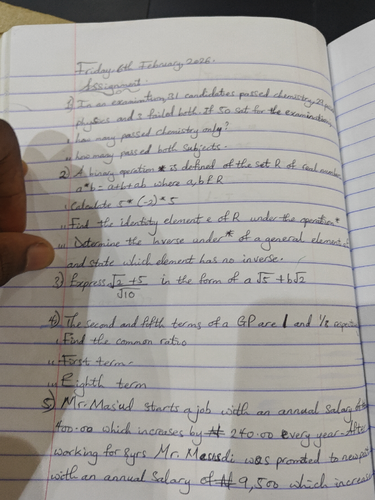 Friday, 6th February, 2026.
Assignment.
1) In an examination, 31 candidates passed chemistry, 29
physics and 2 failed both. If 50 sat for the examination
i. how many passed chemistry only?
ii. how many passed both subjects.
2) A binary operation * is defined of the set R of real
a*b = a+b+ab where a, b ∈ R
i. Calculate 5*(-2)*5
ii. Find the identity element e of R under the operation *
iii. Determine the inverse under * of a general element
and state which element has no inverse.
3) Express √2 + 5 / √10 in the form of a√5 + b√2
4) The second and fifth terms of a GP are 1 and 1/8
i. Find the common ratio
ii. First term.
iii. Eighth term
5) Mr. Masud starts a job with an annual salary
400.00 which increases by ₦ 240.00 every year.
working for 8yrs Mr. was promoted to new
with an annual salary of ₦ 9,500 which